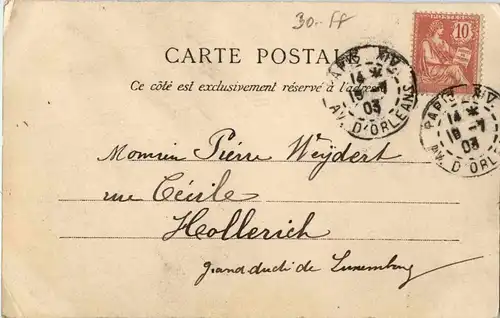 30.- ff
POSTES
10
CARTE POSTALE
Ce côté est exclusivement réservé à l'adresse
PARIS XIV
14
18 -7
03
AV. D'ORLEANS
PARIS XIV
14
18 -7
03
AV. D'ORLE
Monsieur Pierre Weydert
rue Cécile
Hollerich
Grand-duché de Luxembourg